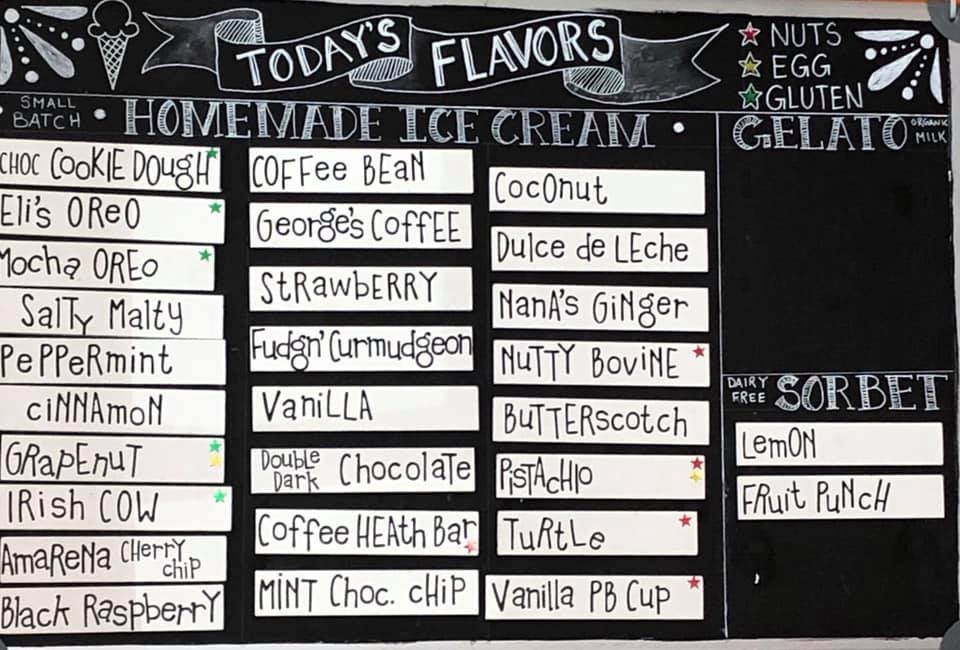 TODAY'S FLAVORS
NUTS
EGG
GLUTEN
SMALL
BATCH
HOMEMADE ICE CREAM
CHOC COOKIE DOUGH
Eli's OREO
Mocha OREO
Salty Malty
Peppermint
Cinnamon
Grapenut
Irish Cow
Amarena Cherry
chip
Black Raspberry
Coffee Bean
George's Coffee
Strawberry
Fudgn' Curmudgeon
Vanilla
Double
Dark Chocolate
Coffee HEAth Bar
Mint Choc. chip
Coconut
Dulce de Leche
Nana's Ginger
Nutty Bovine
Butterscotch
Pistachio
Turtle
Vanilla PB Cup
GELATO
ORGANIC
MILK
DAIRY
FREE
SORBET
Lemon
Fruit Punch